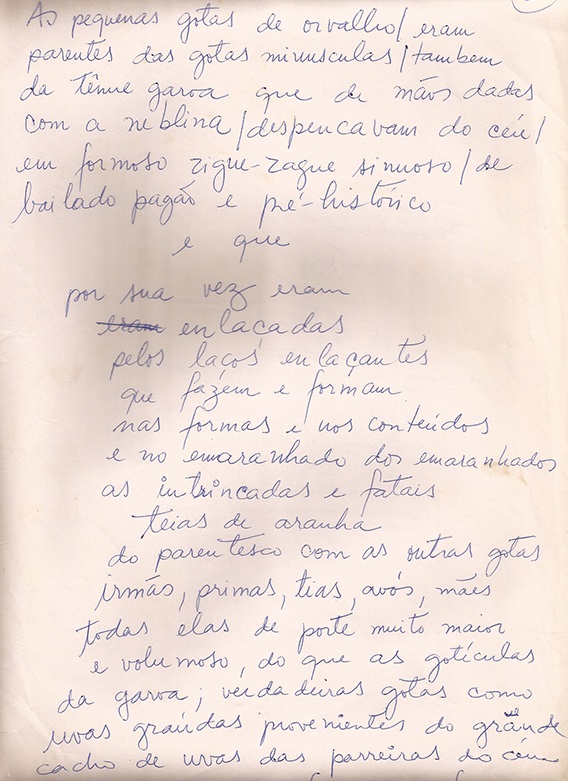 As pequenas gotas de orvalho/ eram
parentes das gotas minusculas/ tambem
da tênue garoa que de mãos dadas
com a neblina/despencavam do céu/
em formoso zigue-zague sinuoso/ de
bailado pagão e pré-histórico
e que
por sua vez eram
eram enlacadas
pelos laços enlaçantes
que fazem e formam
nas formas e nos conteúdos
e no emaranhado dos emaranhados
as intrincadas e fatais
teias de aranha
do parentesco com as outras gotas
irmãs, primas, tias, avós, mães
todas elas de porte muito maior
e volumoso, do que as gotículas
da garoa; verdadeiras gotas como
uvas graúdas provenientes do grande
cacho de uvas das parreiras do céu